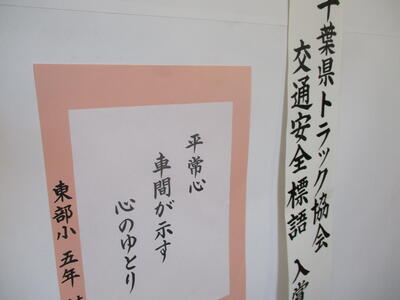 千葉県トラック協会
交通安全標語 入賞
平常心
車間が示す
心のゆとり
東部小 五年